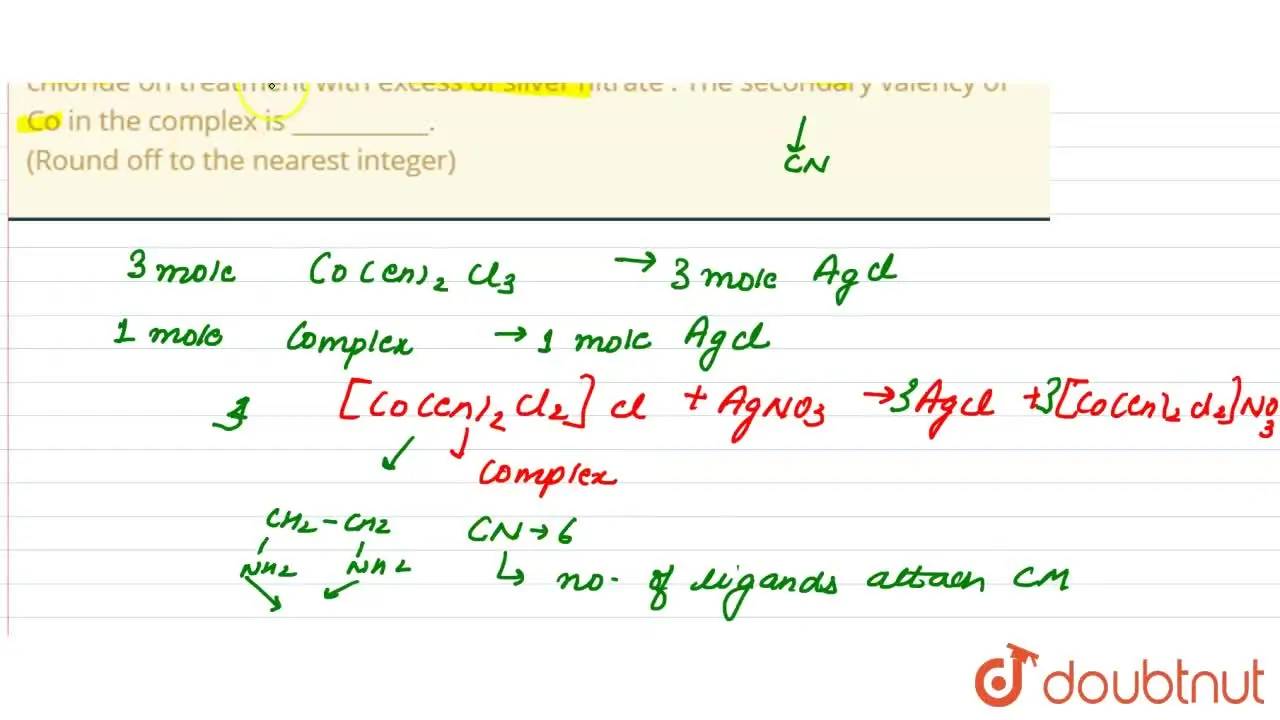 chloride on treatment with excess of silver nitrate . The secondary valency of
Co in the complex is __________.
(Round off to the nearest integer)
↓
CN
3 mole Co(en)2 Cl3 → 3 mole AgCl
1 mole Complex → 1 mole AgCl
3 [Co(en)2 Cl2] Cl + AgNO3 → 3AgCl + 3[Co(en)2 Cl2]NO3
Complex
CH2 - CH2
NH2 NH2
CN → 6
↳ no. of ligands attach CM
doubtnut